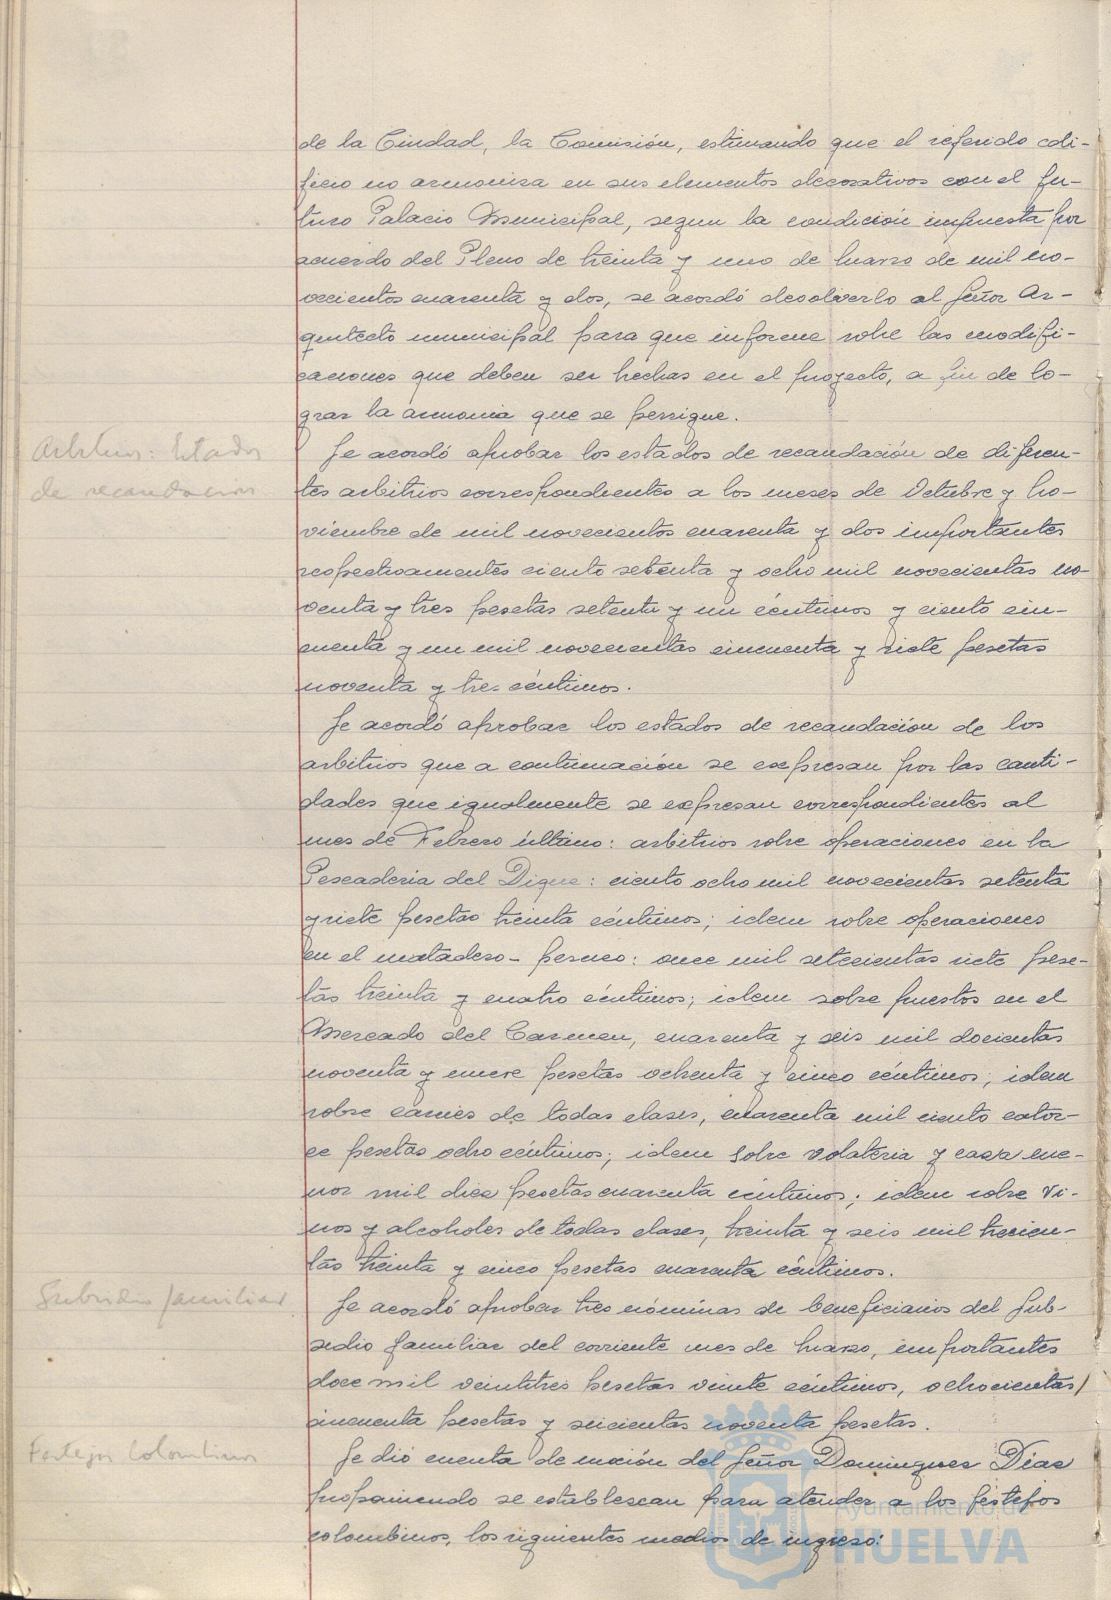 de la Ciudad, la Comisión, estimando que el referido edi-
ficio no armoniza en sus elementos decorativos con el fu-
turo Palacio Municipal, segun la condición impuesta por
acuerdo del Pleno de treinta y uno de marzo de mil no-
vecientos cuarenta y dos, se acordó devolverlo al Señor Ar-
quitecto municipal para que informe sobre las modifi-
caciones que deben ser hechas en el proyecto, a fin de lo-
grar la armonia que se persigue.
Arbitrios: Estados
de recaudación
Se acordó aprobar los estados de recaudación de diferen-
tes arbitrios correspondientes a los meses de Octubre y No-
viembre de mil novecientos cuarenta y dos importantes
respectivamentes ciento setenta y ocho mil novecientas no-
venta y tres pesetas setenta y un céntimos y ciento cin-
cuenta y un mil novecientas cincuenta y siete pesetas
noventa y tres céntimos.
Se acordó aprobar los estados de recaudación de los
arbitrios que a continuación se expresan por las canti-
dades que igualmente se expresan correspondientes al
mes de Febrero último: arbitrios sobre operaciones en la
Pescaderia del Dique: ciento ocho mil novecientas setenta
y siete pesetas treinta céntimos; idem sobre operaciones
en el matadero-perneo: once mil setecientas siete pese-
tas treinta y cuatro céntimos; idem sobre puestos en el
Mercado del Carmen, cuarenta y seis mil docientas
noventa y nueve pesetas ochenta y cinco céntimos; idem
sobre carnes de todas clases, cuarenta mil ciento cator-
ce pesetas ocho céntimos; idem sobre volateria y caza me-
nor mil diez pesetas cuarenta céntimos; idem sobre vi-
nos y alcoholes de todas clases, treinta y seis mil trecien-
tas treinta y cinco pesetas cuarenta céntimos.
Subsidio familiar
Se acordó aprobar tres nóminas de beneficiarios del Sub-
sidio familiar del corriente mes de marzo, importantes
doce mil veintitres pesetas veinte céntimos, ochocientas
cincuenta pesetas y seicientas noventa pesetas.
Festejos Colombinos
Se dió cuenta de moción del Señor Dominguez Diaz
proponiendo se establezcan para atender a los festejos
colombinos, los siguientes medios de ingreso:
Ayuntamiento de
HUELVA